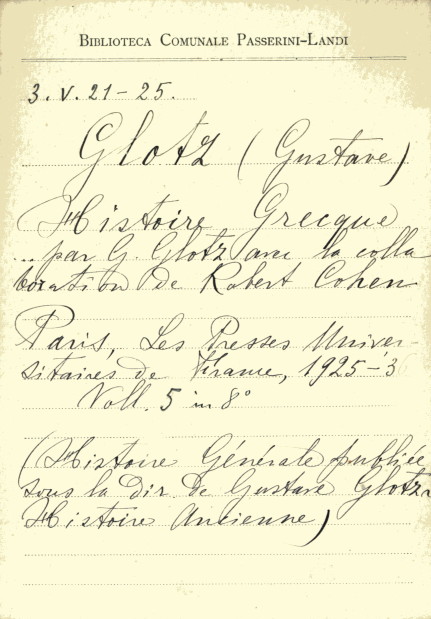 BIBLIOTECA COMUNALE PASSERINI-LANDI
3. V. 21-25.
Glotz (Gustave)
Histoire Grecque
... par G. Glotz avec la colla
boration de Robert Cohen
Paris, Les Presses Univer-
sitaires de France, 1925-36
Voll. 5 in 8°
(Histoire Générale publiée
sous la dir. de Gustave Glotz.
Histoire Ancienne)